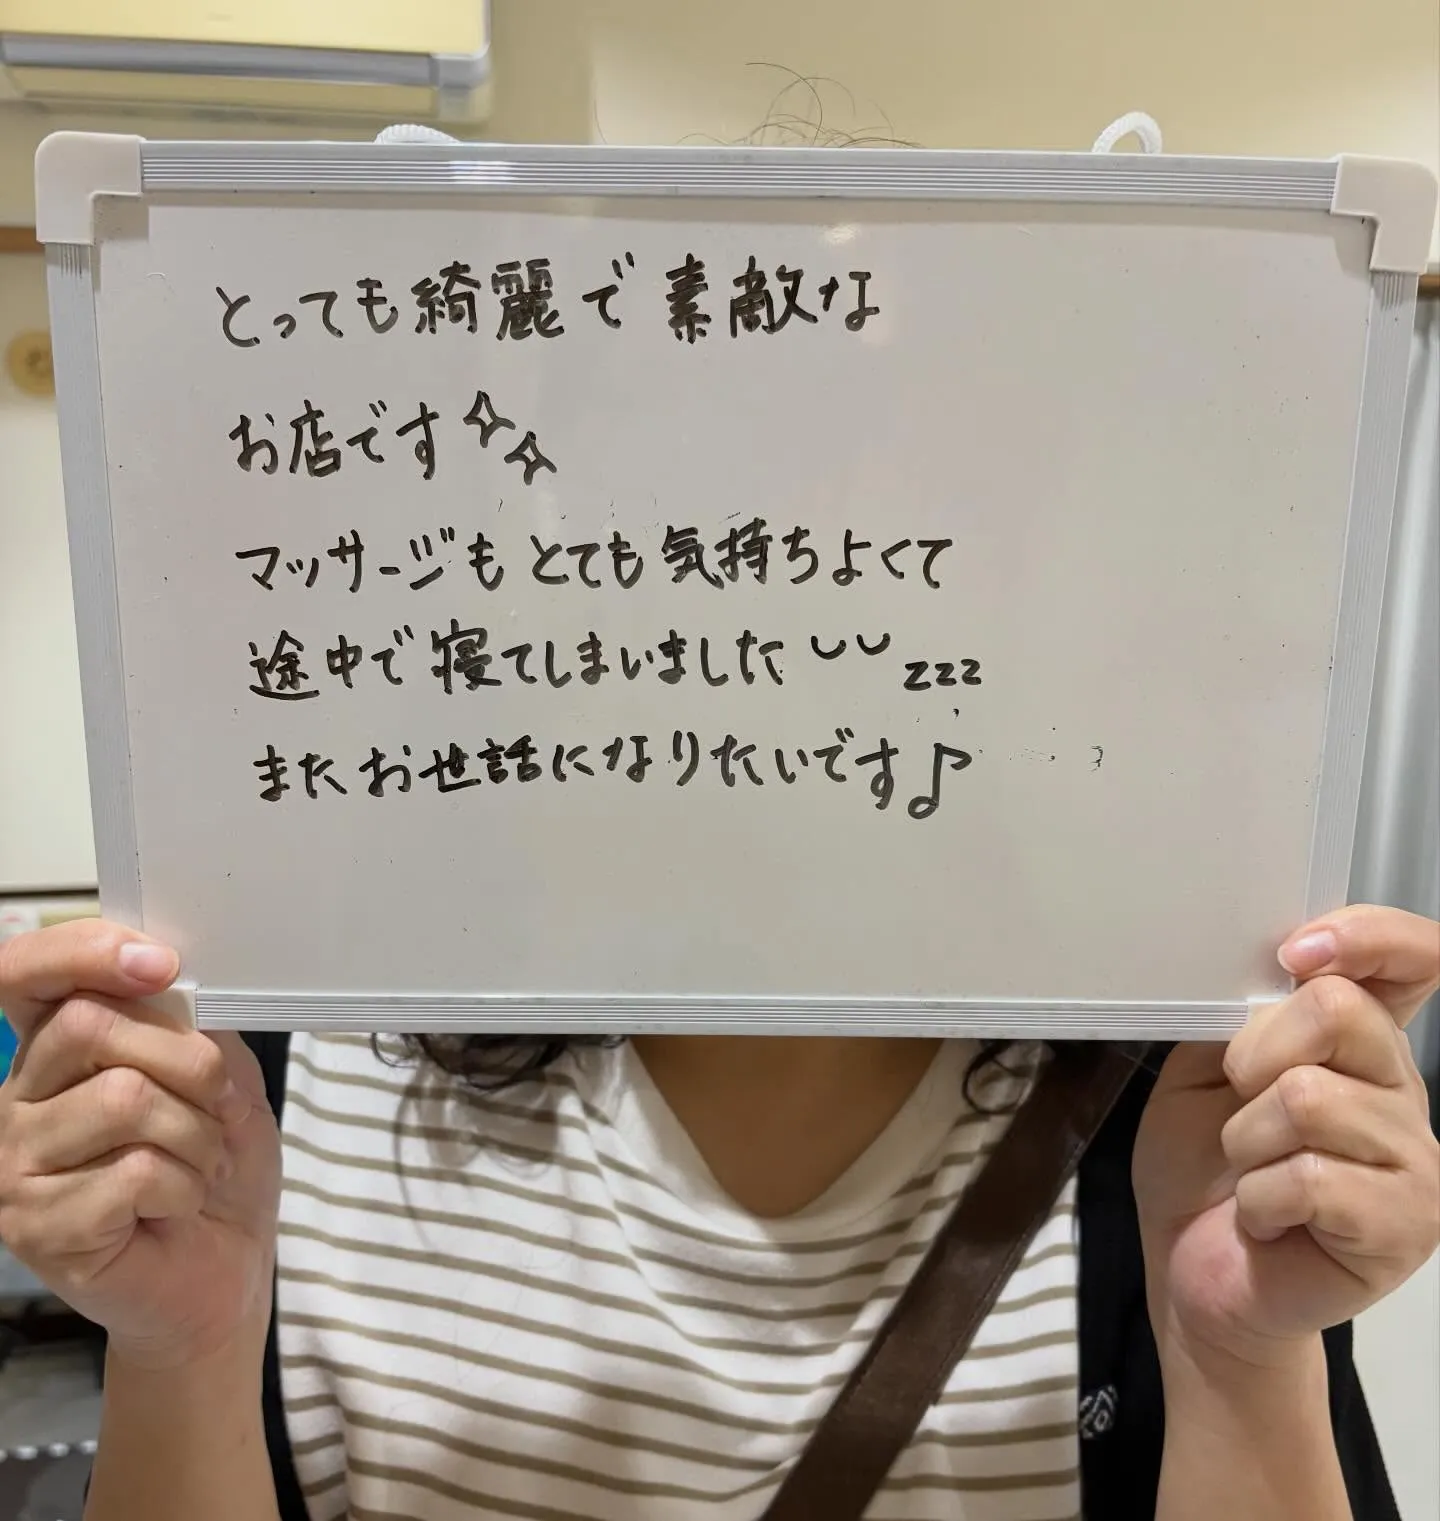 とっても綺麗で素敵な
お店です✧✧
マッサージもとても気持ちよくて
途中で寝てしまいました ᴗᴗ zzz
またお世話になりたいです♪